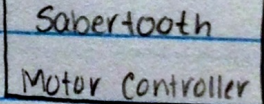 Sabertooth
Motor Controller